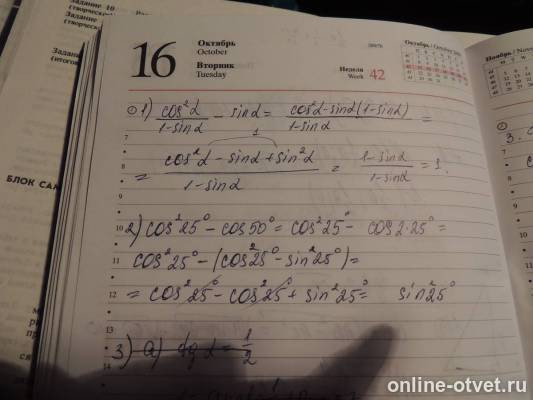 Задание 10
(творческое)
Задание
(творческ
Задан
(итогов
БЛОК САМ
16
Октябрь
October
Вторник
Tuesday
Неделя
Week 42
Октябрь / October
Ноябрь / Nove
1) cos²α/(1-sinα) - sinα = (cos²α-sinα(1-sinα))/(1-sinα) =
1
= (cos²α - sinα + sin²α)/(1-sinα) = (1-sinα)/(1-sinα) = 1.
2) cos²25° - cos50° = cos²25° - cos2·25° =
cos²25° - (cos²25° - sin²25°) =
= cos²25° - cos²25° + sin²25° = sin²25°
3) а) tgα = 1/2
7
8
9
10
11
12
13
14
3.
online-otvet.ru